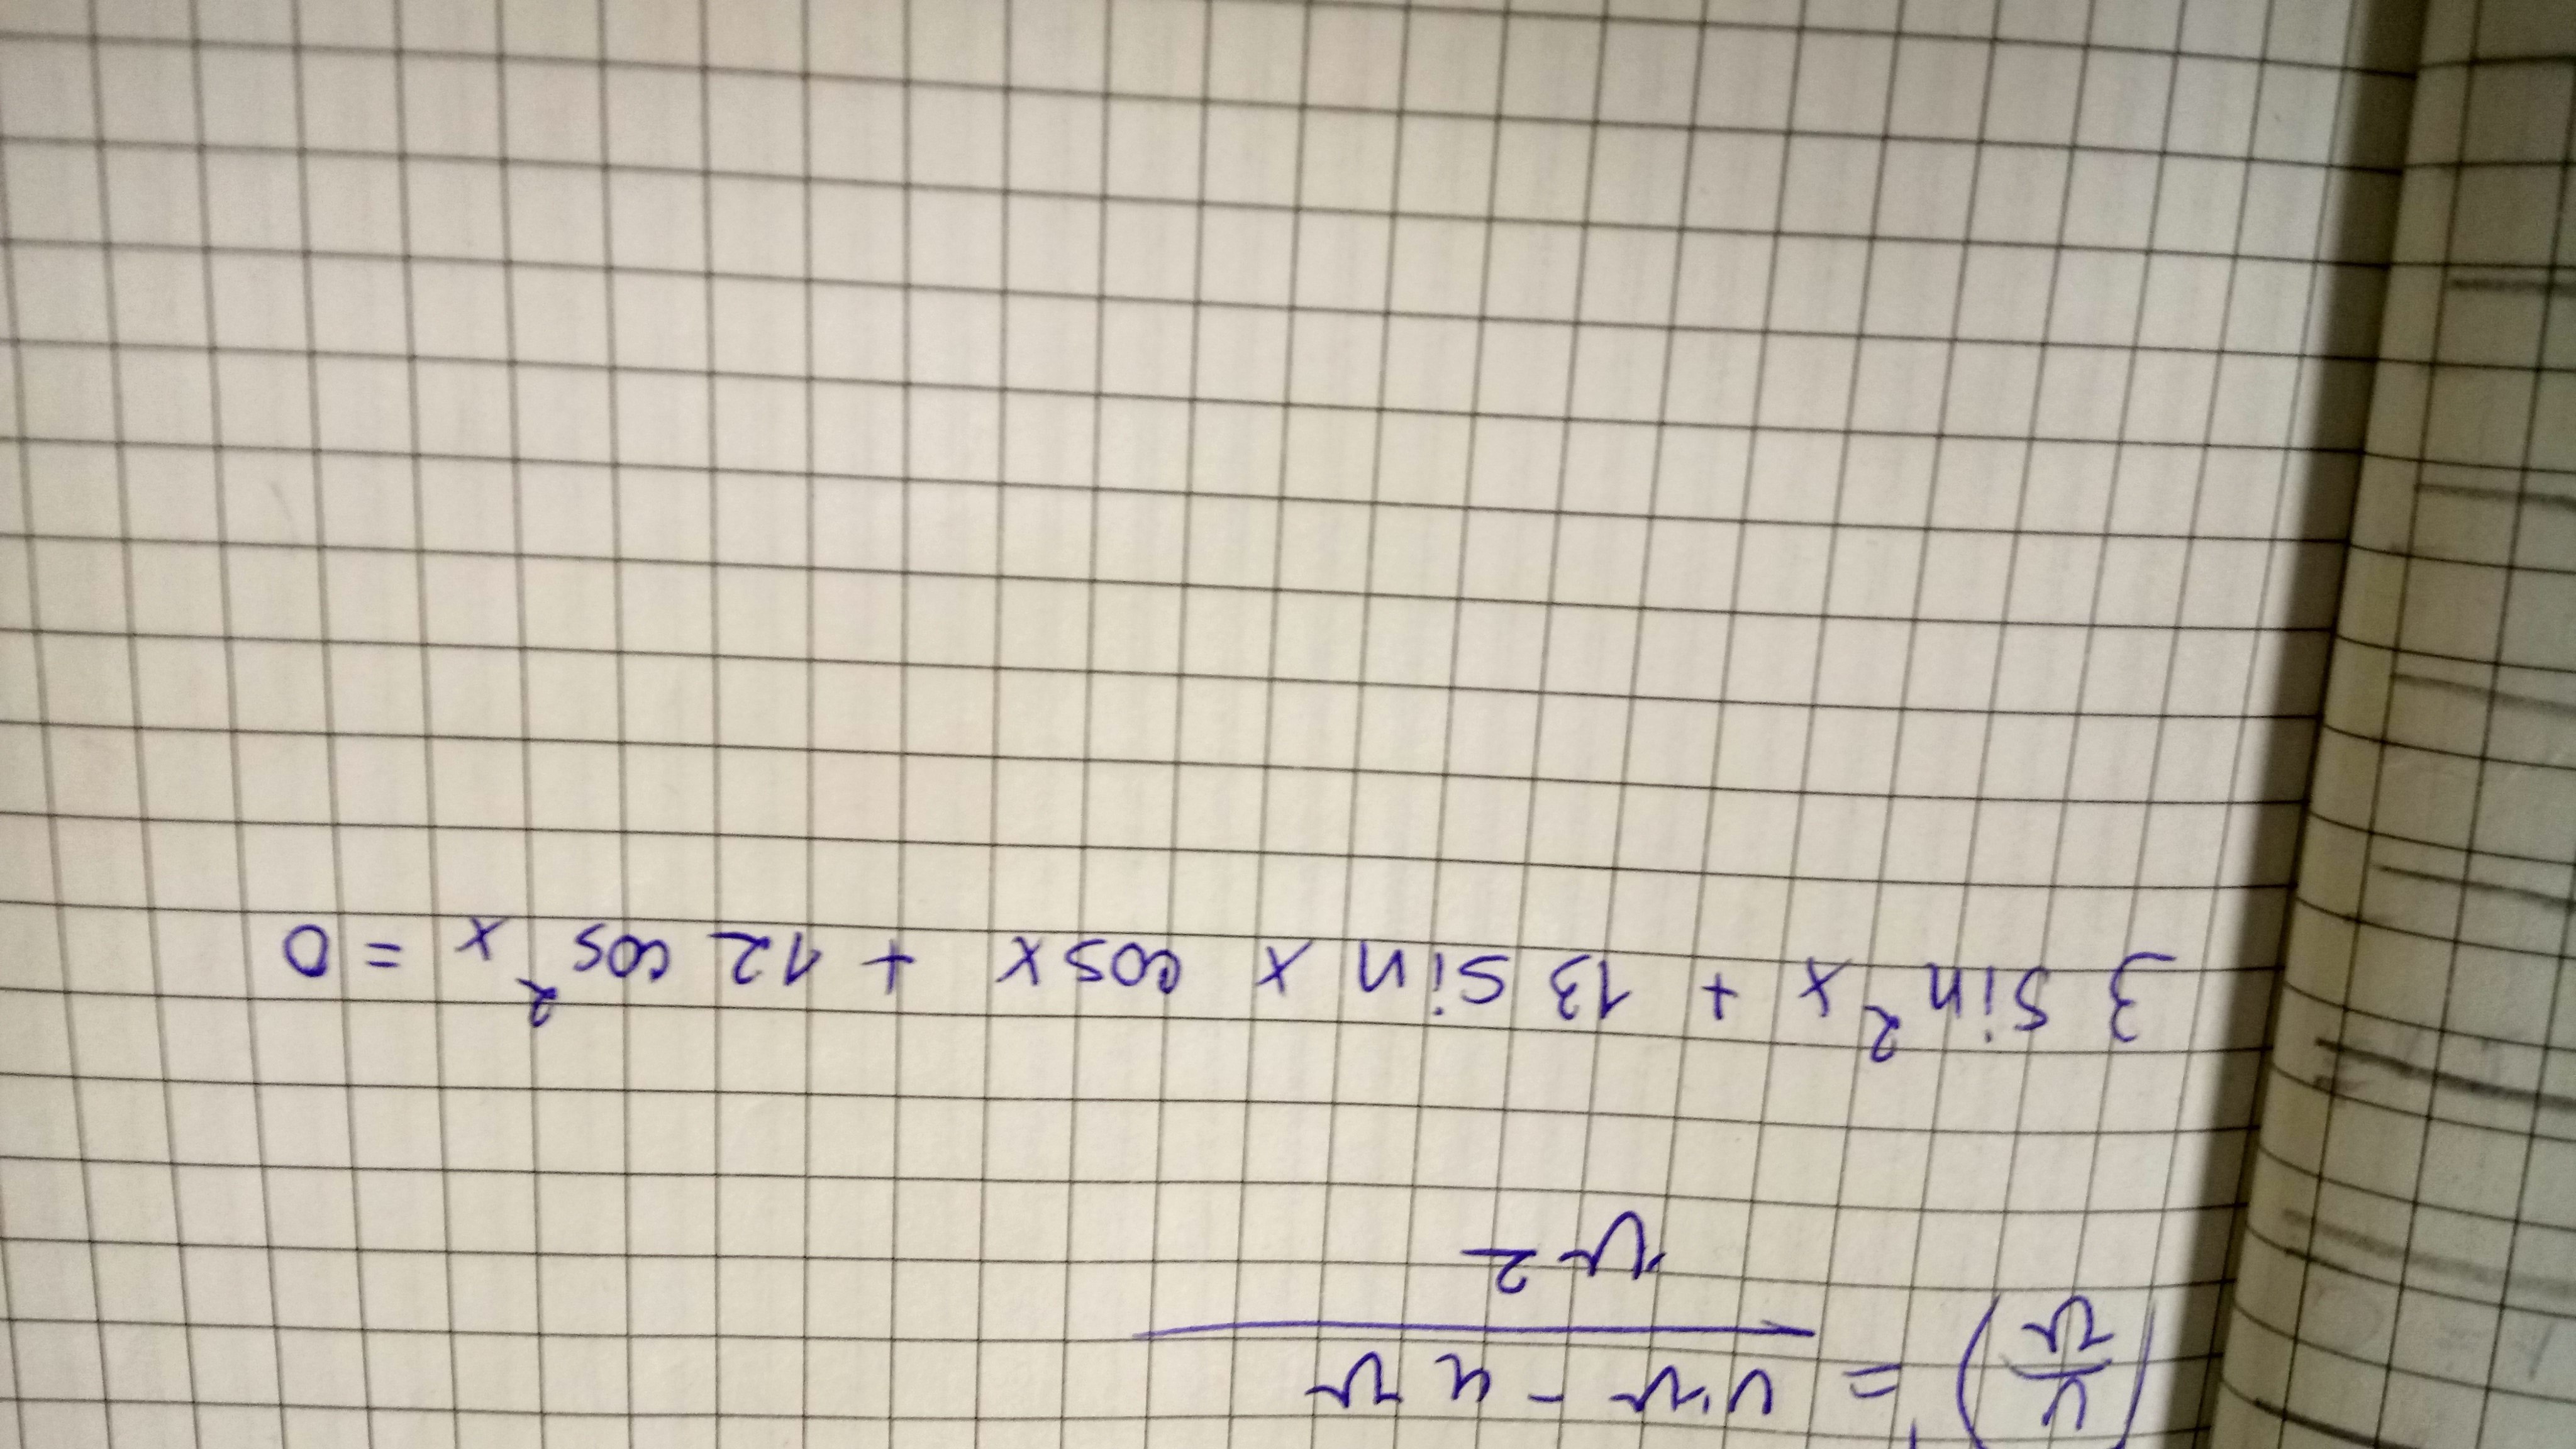 (u/v)' = u'v - uv
v2
3 sin²x + 13 sin x cosx + 12 cos²x = 0